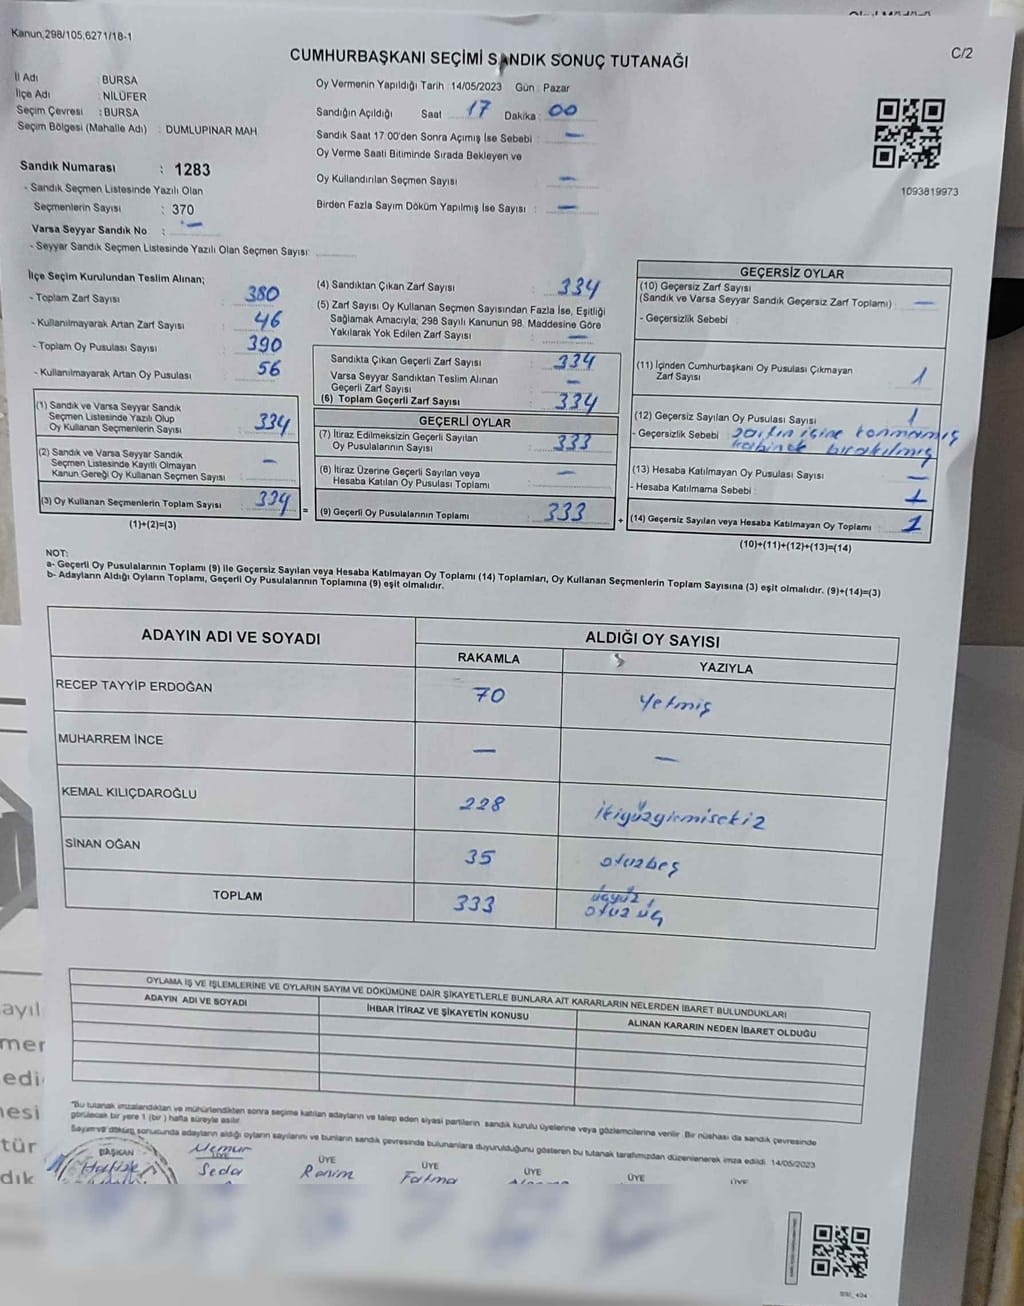 Kanun,298/105,6271/18-1
C/2
CUMHURBAŞKANI SEÇİMİ SANDIK SONUÇ TUTANAĞI
İl Adı : BURSA
İlçe Adı : NİLÜFER
Seçim Çevresi : BURSA
Seçim Bölgesi (Mahalle Adı) : DUMLUPINAR MAH
Sandık Numarası : 1283
- Sandık Seçmen Listesinde Yazılı Olan
Seçmenlerin Sayısı : 370
Varsa Seyyar Sandık No : —
- Seyyar Sandık Seçmen Listesinde Yazılı Olan Seçmen Sayısı:
Oy Vermenin Yapıldığı Tarih : 14/05/2023 Gün : Pazar
Sandığın Açıldığı Saat 17 Dakika : 00
Sandık Saat 17.00'den Sonra Açımış İse Sebebi : —
Oy Verme Saati Bitiminde Sırada Bekleyen ve
Oy Kullandırılan Seçmen Sayısı —
Birden Fazla Sayım Döküm Yapılmış İse Sayısı : —
1093819973
İlçe Seçim Kurulundan Teslim Alınan;
- Toplam Zarf Sayısı : 380
- Kullanılmayarak Artan Zarf Sayısı : 46
- Toplam Oy Pusulası Sayısı : 390
- Kullanılmayarak Artan Oy Pusulası : 56
(1) Sandık ve Varsa Seyyar Sandık
Seçmen Listesinde Yazılı Olup
Oy Kullanan Seçmenlerin Sayısı : 334
(2) Sandık ve Varsa Seyyar Sandık
Seçmen Listesinde Kayıtlı Olmayan
Kanun Gereği Oy Kullanan Seçmen Sayısı : —
(3) Oy Kullanan Seçmenlerin Toplam Sayısı : 334
(1)+(2)=(3)
=
(4) Sandıktan Çıkan Zarf Sayısı : 334
(5) Zarf Sayısı Oy Kullanan Seçmen Sayısından Fazla İse, Eşitliği
Sağlamak Amacıyla; 298 Sayılı Kanunun 98. Maddesine Göre
Yakılarak Yok Edilen Zarf Sayısı : —
Sandıkta Çıkan Geçerli Zarf Sayısı : 334
Varsa Seyyar Sandıktan Teslim Alınan
Geçerli Zarf Sayısı : —
(6) Toplam Geçerli Zarf Sayısı : 334
GEÇERLİ OYLAR
(7) İtiraz Edilmeksizin Geçerli Sayılan
Oy Pusulasının Sayısı : 333
(8) İtiraz Üzerine Geçerli Sayılan veya
Hesaba Katılan Oy Pusulası Toplamı : —
(9) Geçerli Oy Pusulalarının Toplamı : 333
+
GEÇERSİZ OYLAR
(10) Geçersiz Zarf Sayısı
(Sandık ve Varsa Seyyar Sandık Geçersiz Zarf Toplamı) : —
- Geçersizlik Sebebi :
(11) İçinden Cumhurbaşkanı Oy Pusulası Çıkmayan
Zarf Sayısı : 1
(12) Geçersiz Sayılan Oy Pusulası Sayısı : 1
- Geçersizlik Sebebi : zarfın içine konmamış
bırakılmış
(13) Hesaba Katılmayan Oy Pusulası Sayısı : —
- Hesaba Katılmama Sebebi : 1
(14) Geçersiz Sayılan veya Hesaba Katılmayan Oy Toplamı : 1
(10)+(11)+(12)+(13)=(14)
NOT:
a- Geçerli Oy Pusulalarının Toplamı (9) ile Geçersiz Sayılan veya Hesaba Katılmayan Oy Toplamı (14) Toplamları, Oy Kullanan Seçmenlerin Toplam Sayısına (3) eşit olmalıdır. (9)+(14)=(3)
b- Adayların Aldığı Oyların Toplamı, Geçerli Oy Pusulalarının Toplamına (9) eşit olmalıdır.
ADAYIN ADI VE SOYADI
ALDIĞI OY SAYISI
RAKAMLA YAZIYLA
RECEP TAYYİP ERDOĞAN 70 yetmiş
MUHARREM İNCE — —
KEMAL KILIÇDAROĞLU 228 ikiyüzyirmisekiz
SİNAN OĞAN 35 otuzbeş
TOPLAM 333 üçyüz
otuz üç
OYLAMA İŞ VE İŞLEMLERİNE VE OYLARIN SAYIM VE DÖKÜMÜNE DAİR ŞİKAYETLERLE BUNLARA AİT KARARLARIN NELERDEN İBARET BULUNDUKLARI
ADAYIN ADI VE SOYADI İHBAR İTİRAZ VE ŞİKAYETİN KONUSU ALINAN KARARIN NEDEN İBARET OLDUĞU
"Bu tutanak imzalandıktan ve mühürlendikten sonra seçime katılan adayların ve talep eden siyasi partilerin sandık kurulu üyelerine veya gözlemcilerine verilir. Bir nüshası da sandık çevresinde
görülecek bir yere 1 (bir) hafta süreyle asılır.
Sayım ve döküm sonucunda adayların aldığı oyların sayılarını ve bunların sandık çevresinde bulunanlara duyurulduğunu gösteren bu tutanak tarafımızdan düzenlenerek imza edildi. 14/05/2023
BAŞKAN Memur ÜYE ÜYE ÜYE ÜYE ÜYE ÜYE
Seda Ranim Fatma
ayıl
mer
edi
nesi
tür
dık